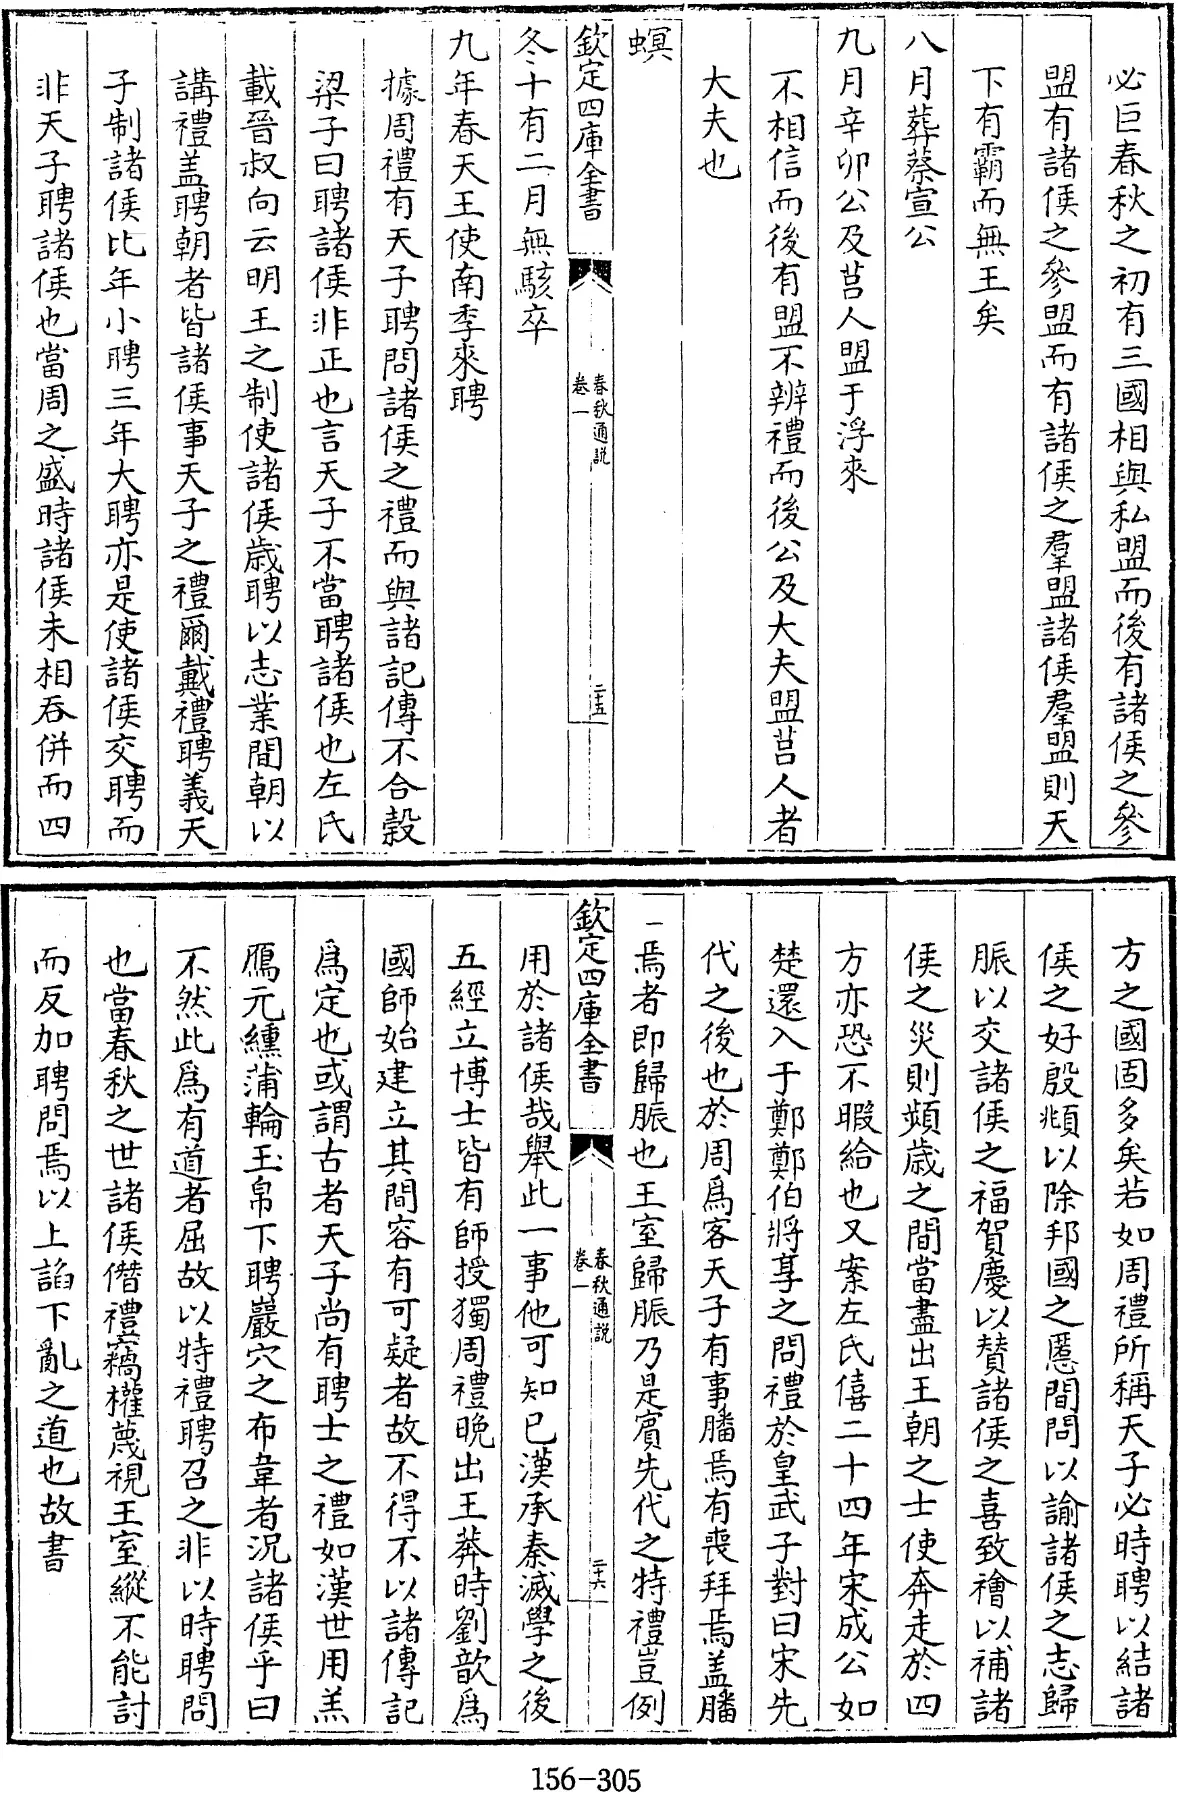 必巨春秋之初有三國相與私盟而後有諸侯之參
盟有諸侯之參盟而有諸侯之羣盟諸侯羣盟則天
下有霸而無王矣
八月葬蔡宣公
九月辛卯公及莒人盟于浮來
不相信而後有盟不辨禮而後公及大夫盟莒人者
大夫也
螟
欽定四庫全書
春秋通説
卷一
二十五
冬十有二月無駭卒
九年春天王使南季來聘
據周禮有天子聘問諸侯之禮而與諸記傳不合穀
梁子曰聘諸侯非正也言天子不當聘諸侯也左氏
載晉叔向云明王之制使諸侯歲聘以志業間朝以
講禮盖聘朝者皆諸侯事天子之禮爾戴禮聘義天
子制諸侯比年小聘三年大聘亦是使諸侯交聘而
非天子聘諸侯也當周之盛時諸侯未相吞併而四
方之國固多矣若如周禮所稱天子必時聘以結諸
侯之好殷頫以除邦國之慝間問以諭諸侯之志歸
脤以交諸侯之福賀慶以賛諸侯之喜致禬以補諸
侯之災則頻歲之間當盡出王朝之士使奔走於四
方亦恐不暇給也又案左氏僖二十四年宋成公如
楚還入于鄭鄭伯將享之問禮於皇武子對曰宋先
代之後也於周爲客天子有事膰焉有喪拜焉盖膰
一焉者即歸脤也王室歸脤乃是賓先代之特禮豈例
欽定四庫全書
春秋通説
卷一
二十六
用於諸侯哉舉此一事他可知已漢承秦滅學之後
五經立博士皆有師授獨周禮晚出王莽時劉歆爲
國師始建立其間容有可疑者故不得不以諸傳記
爲定也或謂古者天子尚有聘士之禮如漢世用羔
鴈元纁蒲輪玉帛下聘巖穴之布韋者況諸侯乎曰
不然此爲有道者屈故以特禮聘召之非以時聘問
也當春秋之世諸侯僭禮竊權蔑視王室縱不能討
而反加聘問焉以上諂下亂之道也故書
156-305